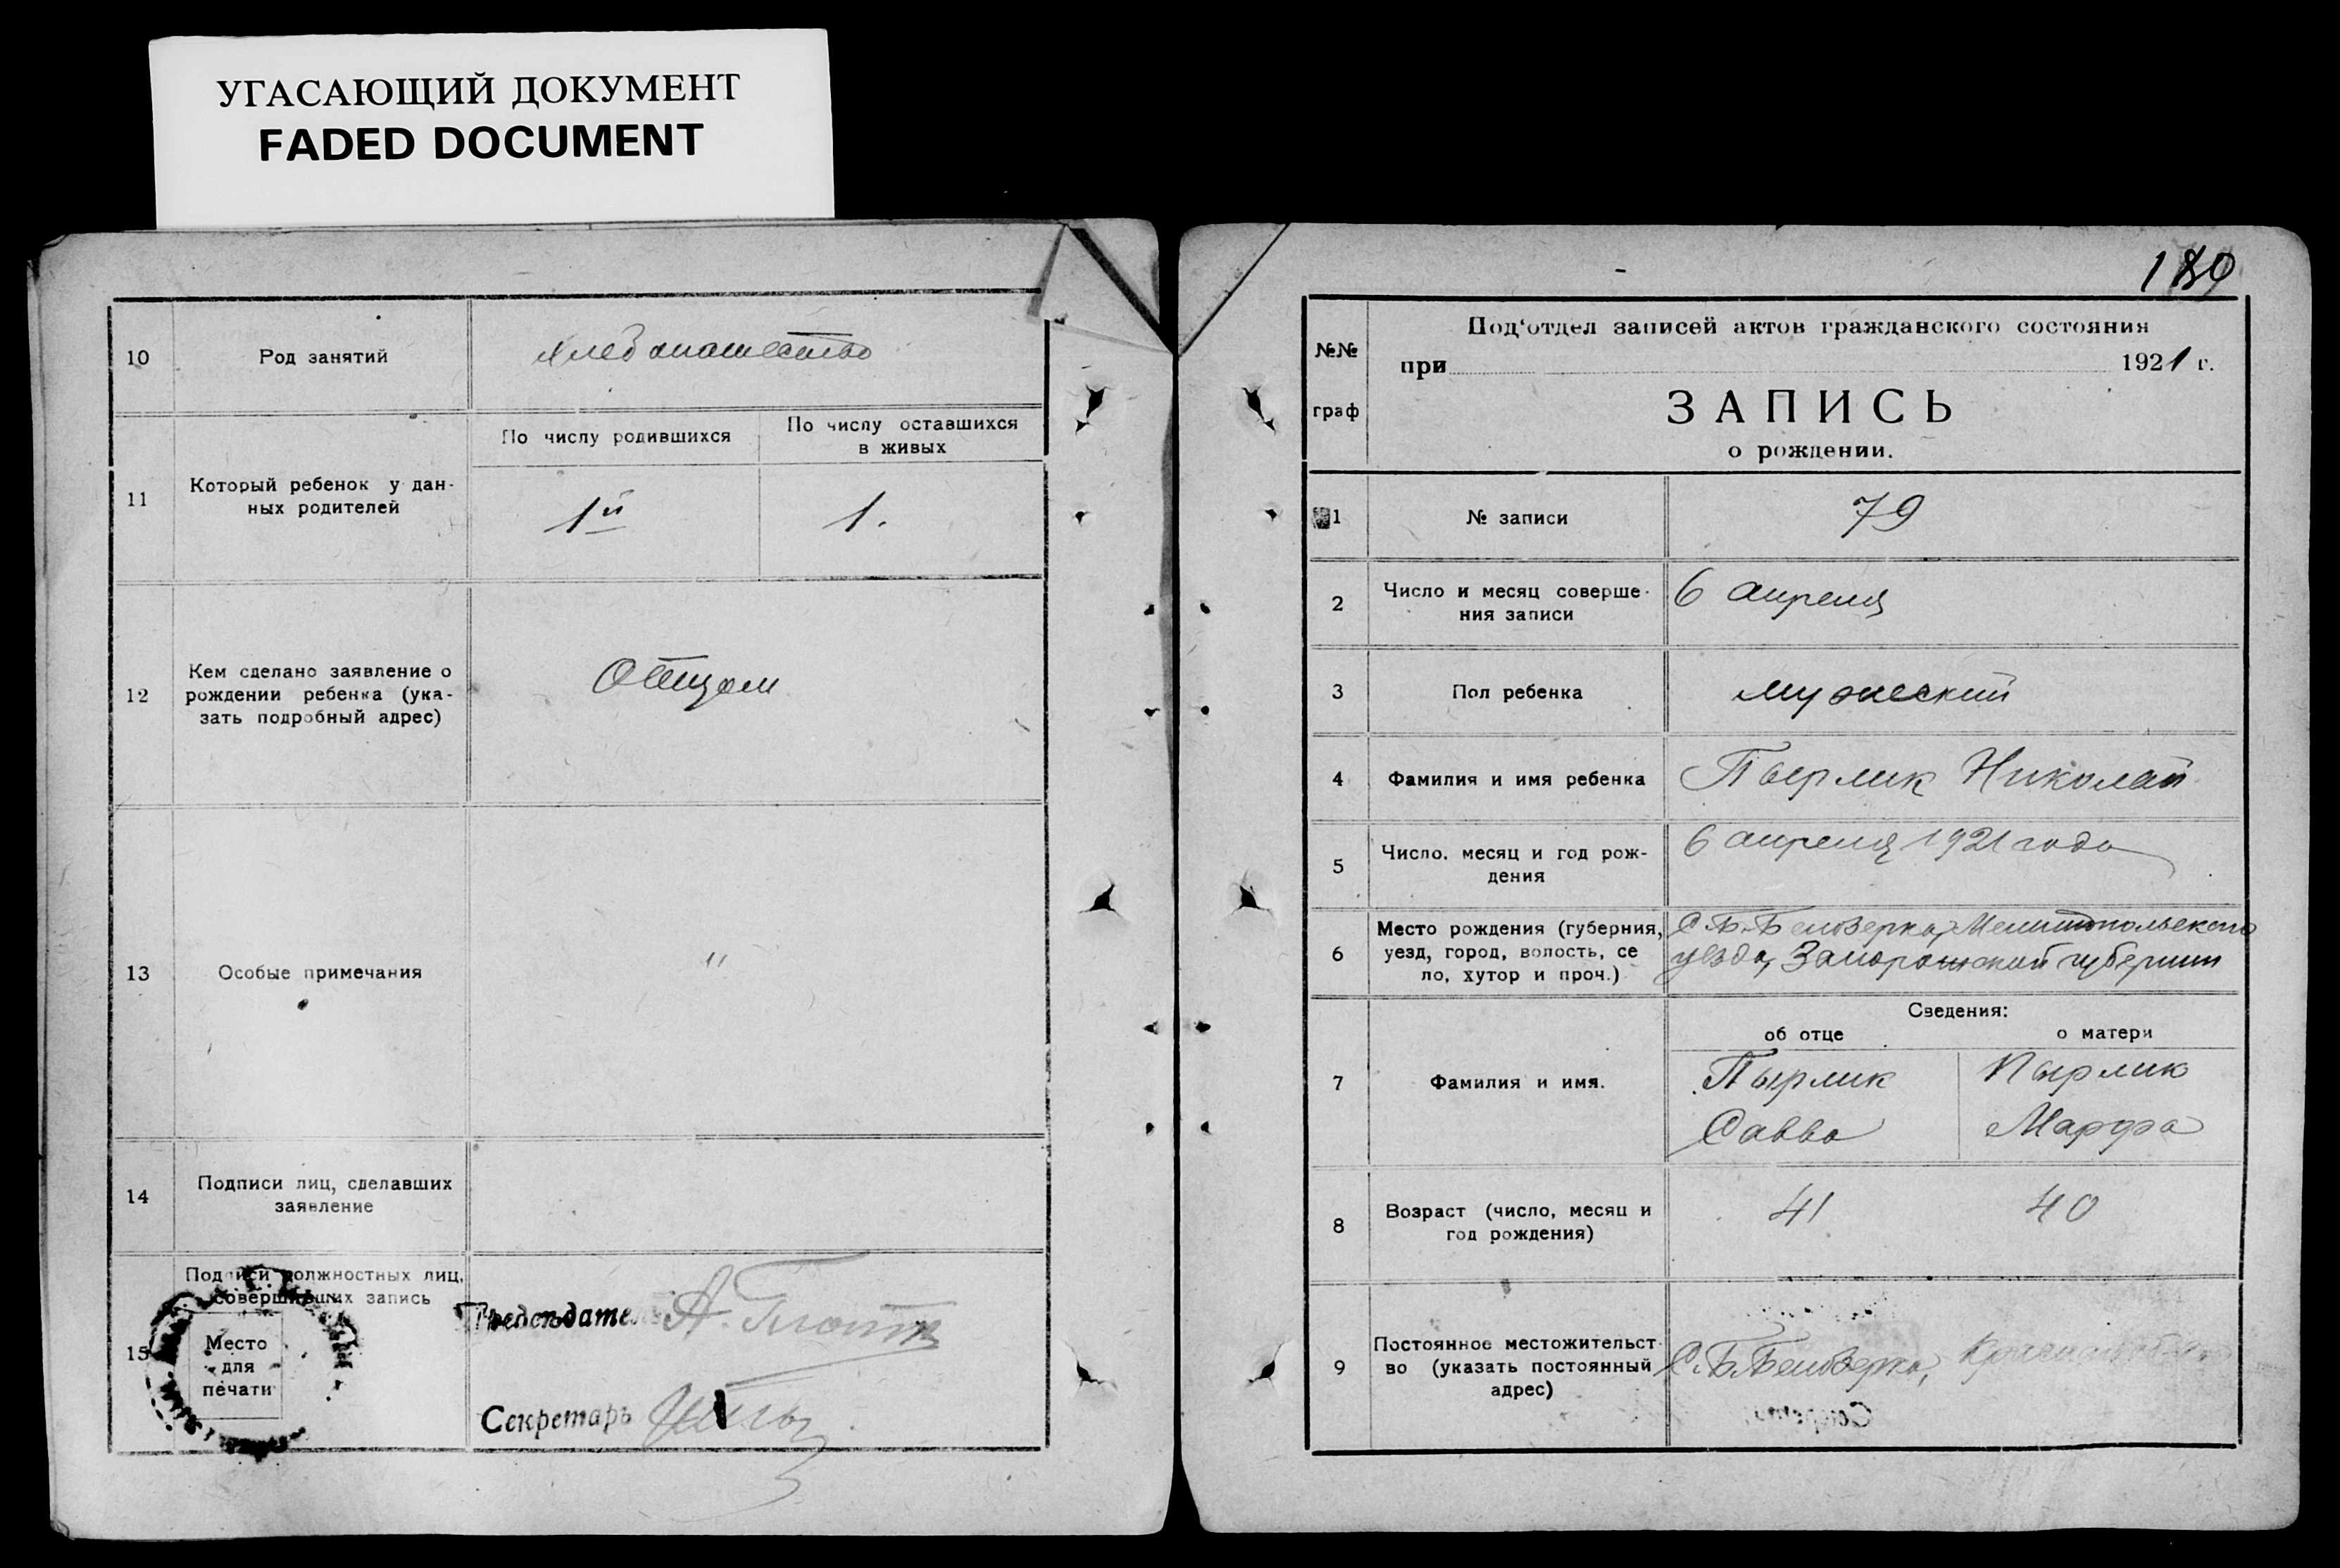 УГАСАЮЩИЙ ДОКУМЕНТ
FADED DOCUMENT
10
Род занятий
хлебопашество
11
Который ребенок у дан-
ных родителей
По числу родившихся
По числу оставшихся
в живых
1й
1.
12
Кем сделано заявление о
рождении ребенка (ука-
зать подробный адрес)
Отцом
13
Особые примечания
"
14
Подписи лиц, сделавших
заявление
15
Подписи должностных лиц,
совершивших запись
Место
для
печати
Председатель А.
Секретарь
180
№№
граф
Под'отдел записей актов гражданского состояния
при 1921 г.
ЗАПИСЬ
о рождении.
1
№ записи
79
2
Число и месяц соверше-
ния записи
6 апреля
3
Пол ребенка
мужеский
4
Фамилия и имя ребенка
Пырлик Николай
5
Число, месяц и год рож-
дения
6 апреля 1921 года
6
Место рождения (губерния,
уезд, город, волость, се
ло, хутор и проч.)
С. Б-Белозерка, Мелитопольского
уезда, Запорожской губернии
Сведения:
об отце
о матери
7
Фамилия и имя.
Пырлик
Савва
Пырлик
Марфа
8
Возраст (число, месяц и
год рождения)
41
40
9
Постоянное местожительст-
во (указать постоянный
адрес)
С. Б. Белозерка,